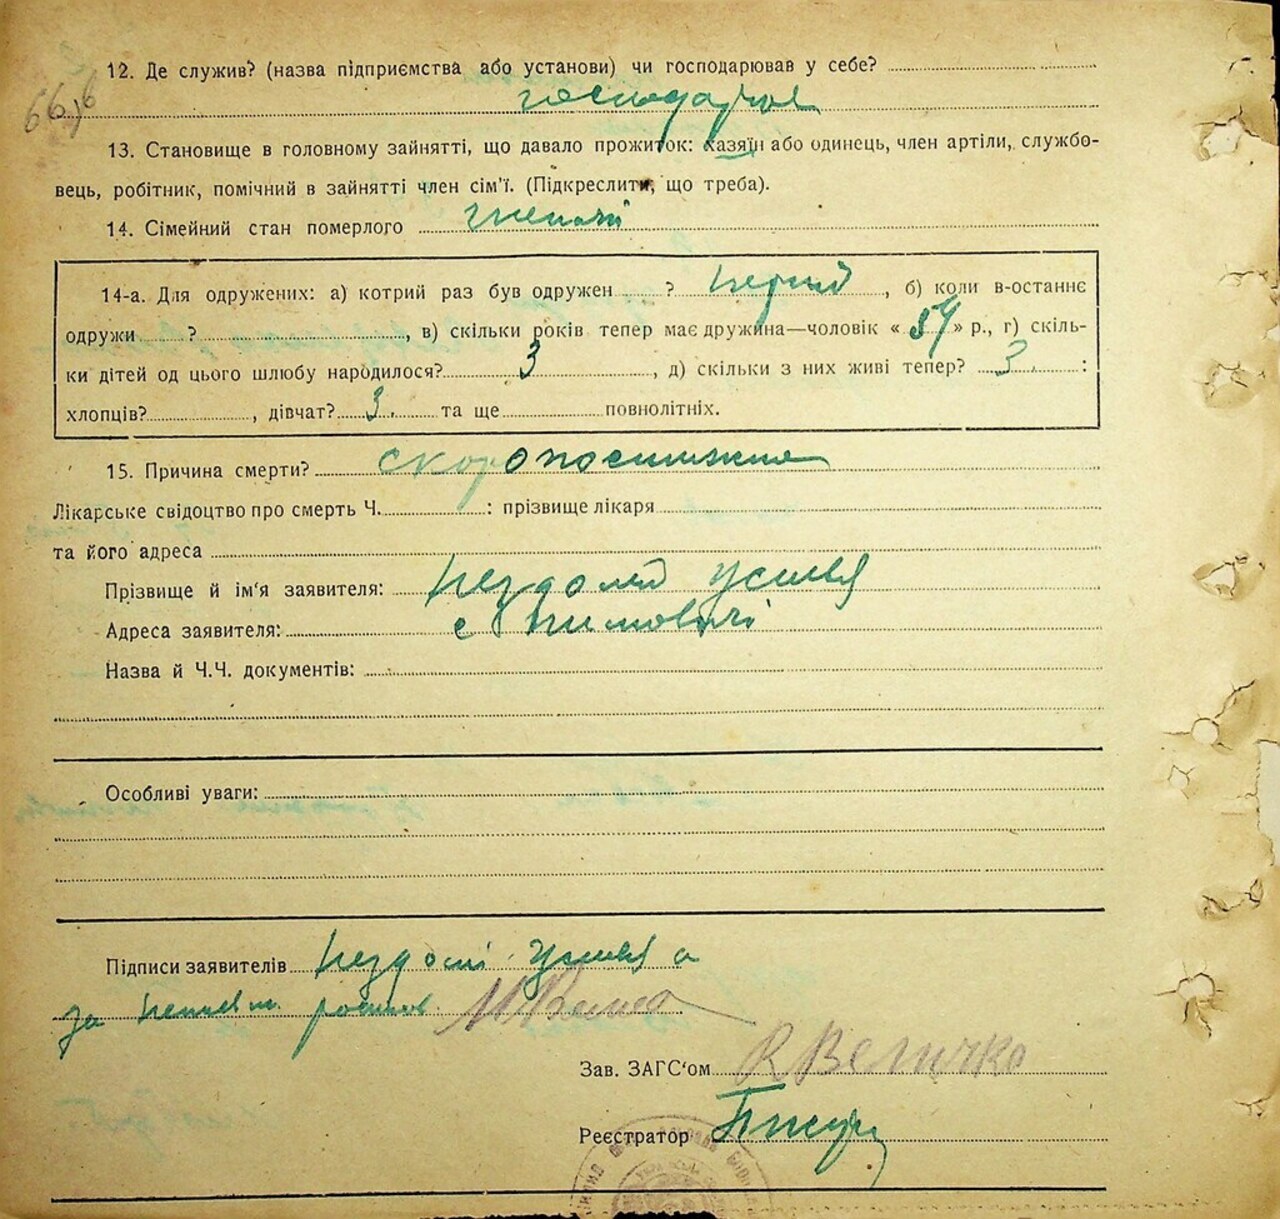 12. Де служив? (назва підприємства або установи) чи господарював у себе?
господарюв
13. Становище в головному зайнятті, що давало прожиток: хазяїн або одинець, член артіли, службо-
вець, робітник, помічний в зайнятті член сім'ї. (Підкреслити, що треба).
14. Сімейний стан померлого
14-а. Для одружених: а) котрий раз був одружен ? перший, б) коли в-останнє
одружи ? , в) скільки років тепер має дружина—чоловік « 54 » р., г) скіль-
ки дітей од цього шлюбу народилося? 3 , д) скільки з них живі тепер? 3 :
хлопців? , дівчат? 3. та ще повнолітніх.
15. Причина смерти? скоропостижна
Лікарське свідоцтво про смерть Ч. : прізвище лікаря
та його адреса
Прізвище й ім'я заявителя:
Адреса заявителя: с
Назва й Ч.Ч. документів:
Особливі уваги:
Підписи заявителів а
за
Зав. ЗАГС'ом К Величко
Реєстратор